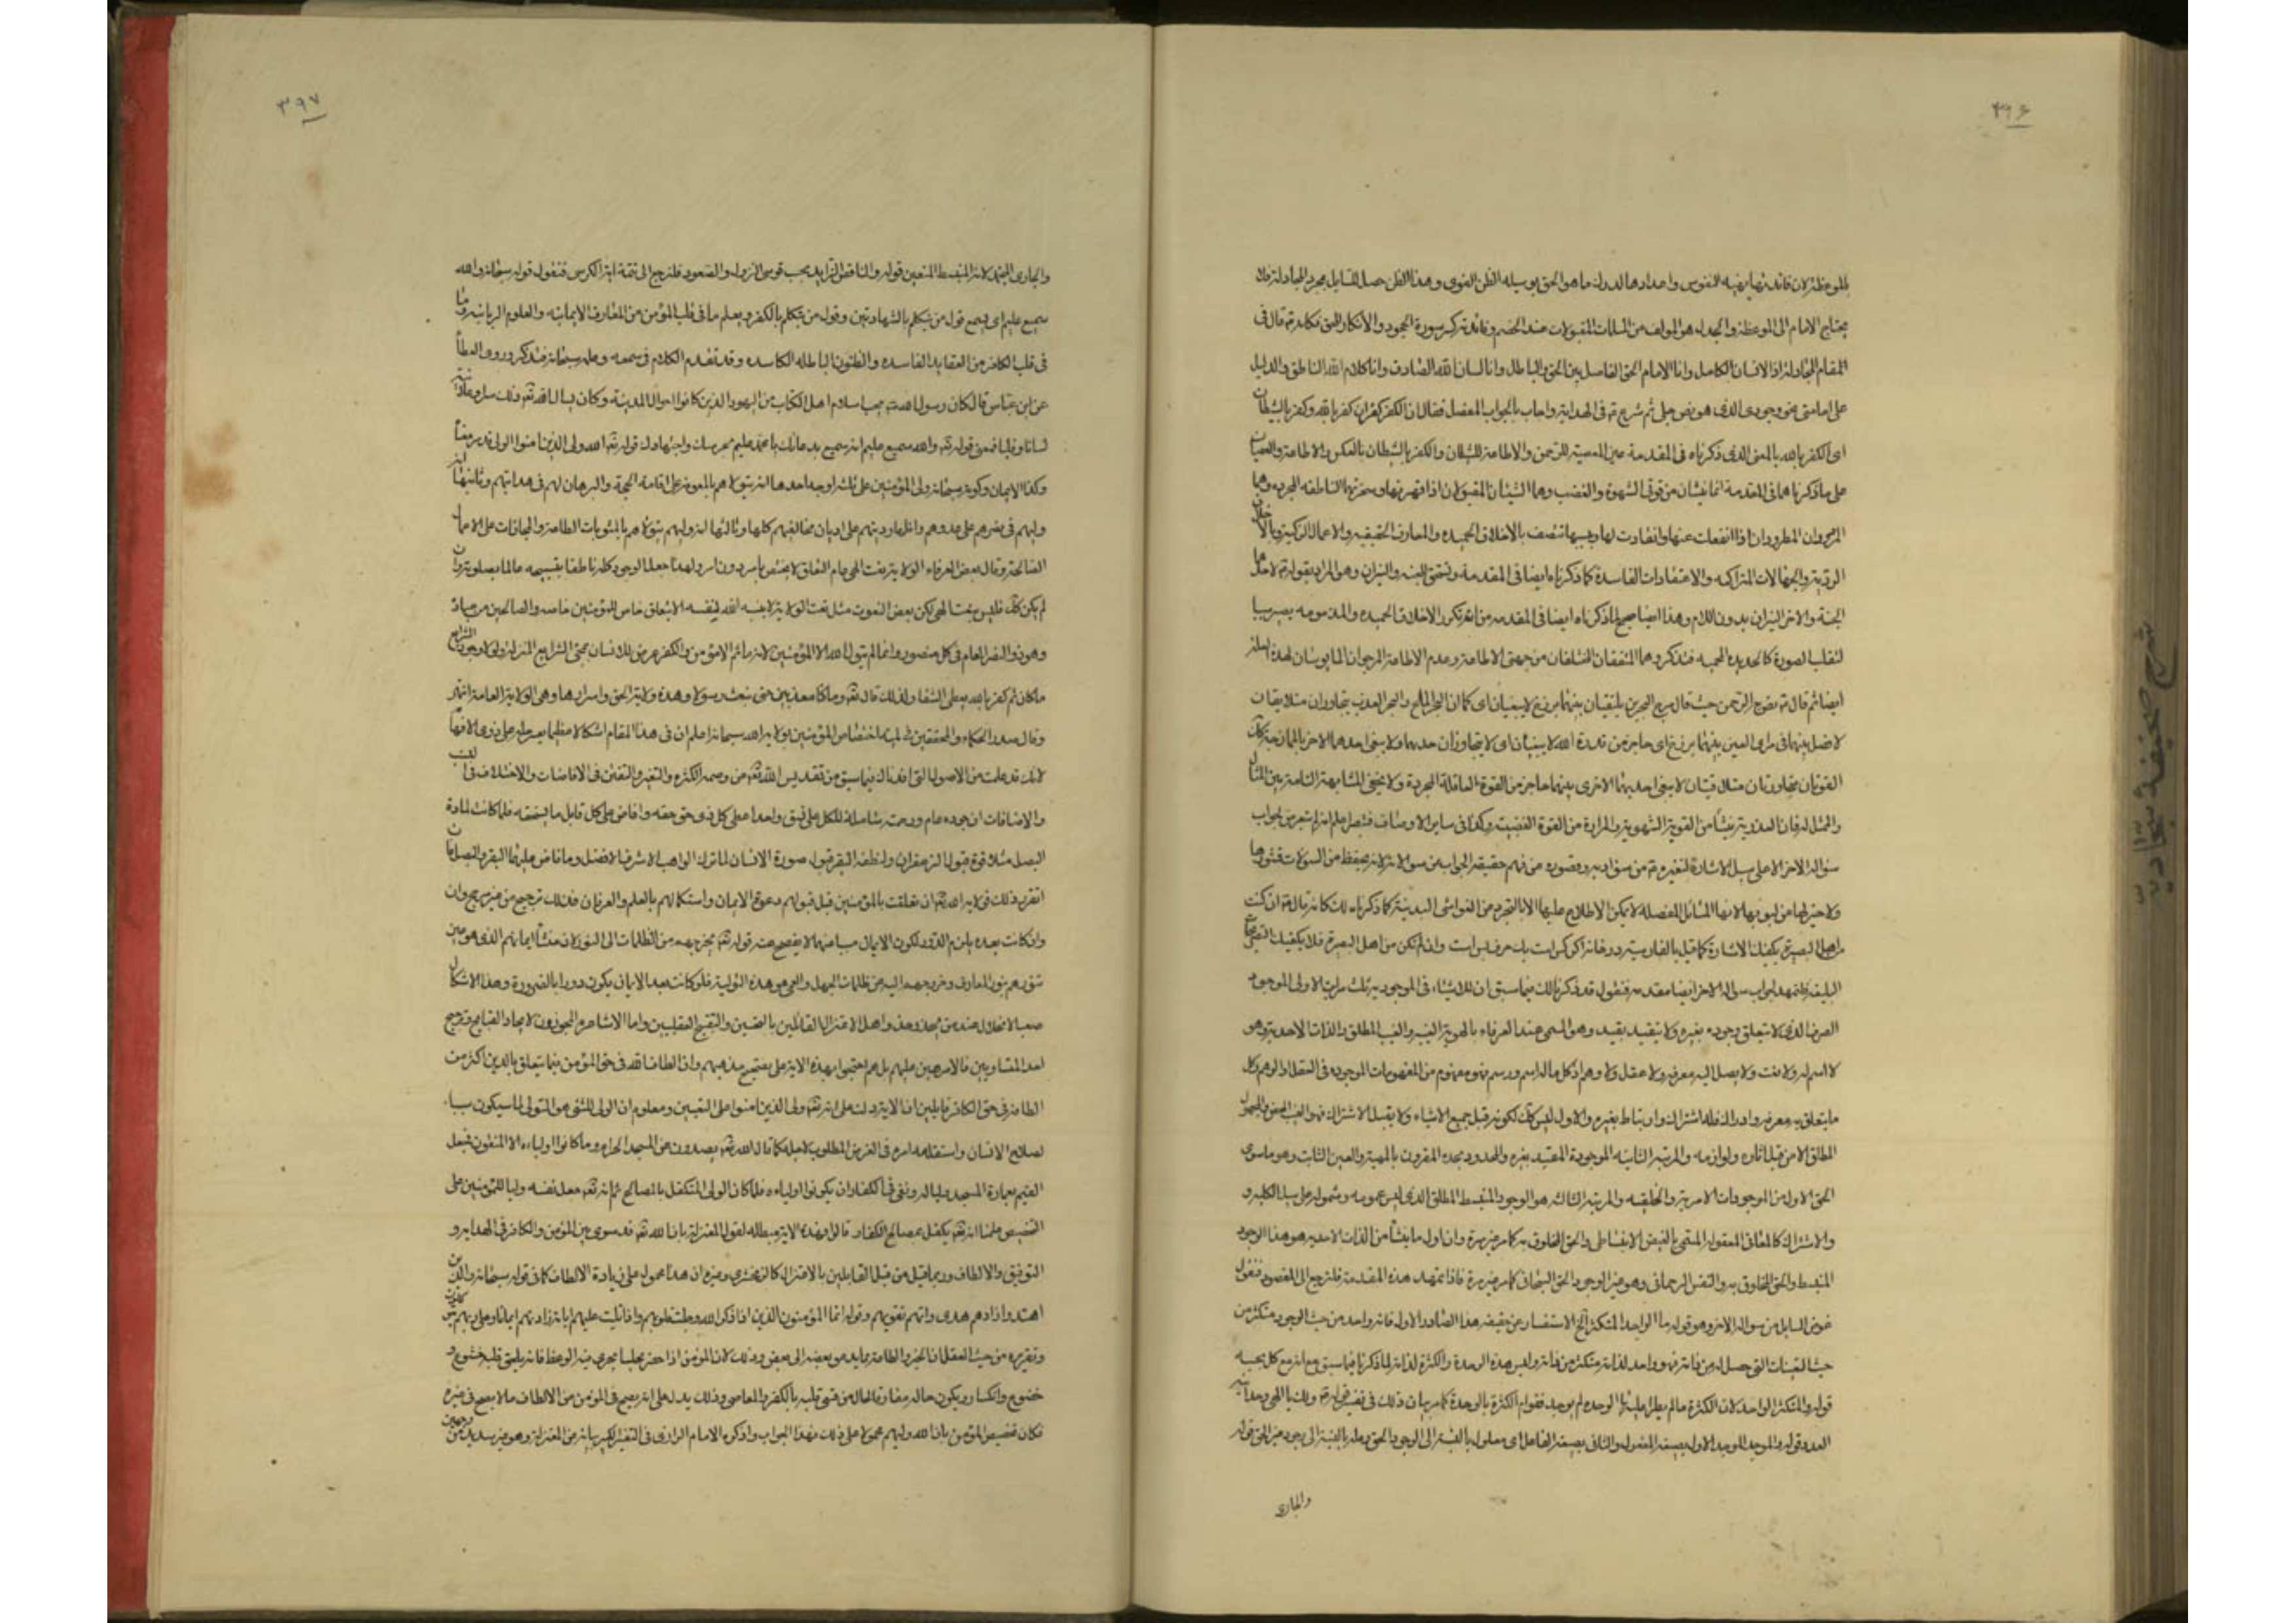 ٣٩٦
بالموعظة لان فائدتها تهيئة النفوس واعدادها لدرك ما هو الحق بوسيلة الظن القوى وهذا الظن حصل للسايل بمجرد المجادلة فلا
يحتاج الامام الى الموعظة والجدل هو المؤلف من المسلمات المقبولات عند الخصم وفائدته كسر سورة الجحود والانكار للحق فكانه قال فى
المقام المجادلة اذا الانسان الكامل وانا الامام الحق الفاصل بين الحق والباطل وانا لسان الله الصادق وانا كلام الله الناطق والدليل
على امامتى هو وجودى الذى هو نص جلى ثم شرع فى الهداية واجاب بالجواب المفصل فقال ان الكفر كفران كفر بالله وكفر بالشيطان
اى الكفر بالله بالمعنى الذى ذكرناه فى المقدمة عين المعصية للرحمن والاطاعة للشيطان والكفر بالشيطان بالعكس والاطاعة والعصيان
على ما ذكرناهما فى المقدمة انما ينشان من قوتى الشهوة والغضب وهما الشيئان المقبولان اذا قهرتهما وسخرتهما الناطقة المجردة وهما
المرجوان المطرودان اذا انفعلت عنهما وانقادت لهما وبسببهما تتصف بالاخلاق الحميدة والمعارف الحقيقيه والاعمال الزكية وبالاخلاق
الردية والجهالات المتراكمه والاعتقادات الفاسدة كما ذكرناه ايضا فى المقدمة وتستحق الجنة والنيران وهو المراد بقوله لاحدهما
الجنة والاخر النيران بدون اللام وهذا ايضا صحيح لما ذكرناه ايضا فى المقدمه من ان تكون الاخلاق الحميده والمذمومه يصير سببا
لتقلب الصورة كالحديدة المحمية فتذكر وهما المتفقان المختلفان من جهتى الاطاعة وعدم الاطاعة المرجوان المايوسان لهذه العلة
ايضا ثم قال نص به الرحمن حيث قال مرج البحرين يلتقيان بينهما برزخ لا يبغيان اى كما ان البحر المالح والبحر العذب يتجاوران متلاقيان
لا فصل بينهما فى مراى العين بينهما برزخ اى حاجز من قدرة الله لا يبغيان اى لا يتجاوزان حديهما ولا يبغى احدهما الاخر بالممازجة كذلك
القوتان متجاورتان متلاقيتان لا يبغى احديهما الاخرى بينهما حاجز من القوة العاقلة المجردة ولا يخفى المشابهة التامة بين المثال
والممثل له فان العذوبة ينشأ من القوة الشهوية والمرارة من القوة الغضبية وكذا فى ساير الاوصاف فتبصر واعلم انه لم يتعرض لجواب
سؤاله الاخر الا على سبيل الاشارة لتغيره من سوء ادبه وقصوره عن فهم حقيقة الجواب عن سؤالاته لانه يحفظ من السؤالات قشورها
ولا خبر لها من لبوبها لانها المسائل المفصله لا يمكن الاطلاع عليها الا بالتجرد من الغواشى البدنية كما ذكرناه لك كانه قال ان كنت
من اهل البصيرة يكفيك الاشارة كما قيل بالفارسية در خانه اكر كس است يك حرف بس است وان لم تكن من اهل البصيرة فلا يكفيك التصريح
البليغة فلنمهد لجواب سؤاله الاخر ايضا مقدمه فنقول قد ذكرنا لك فيما سبق ان للاشياء فى الموجوديه ثلث مراتب الاولى الموجود
الصرف الذى لا يتعلق وجوده بغيره ولا يتقيد بقيد وهو المسمى عند العرفاء بالهوية الغيبيه والغيب المطلق والذات الاحدية وهو
لا اسم له ولا نعت ولا يصل اليه معرفة ولا عقل ولا وهم اذ كل ماله اسم ورسم فهو مفهوم من المفهومات الموجوده فى العقل او الوهم وكل
ما يتعلق به معرفة وادراك فله اشتراك وارتباط بغيره والاول ليس كذلك لكونه قبل جميع الاشياء ولا يقبل الاشتراك فهو الغيب المحض والمجهول
المطلق الا من قبل اثاره ولوازمه والمرتبة الثانيه الموجودة المقيد بغيره والمحدود بحده المقرون بالمهية والعين الثابت وهو ما سوى
الحق الاول من الموجودات الامرية والخلقيه والمرتبة الثالثة هو الوجود المنبسط المطلق الذى ليس عمومه وشموله على سبيل الكلية و
والاشتراك كالمعانى المعقولة المسمى بالفيض الانبساطى والحق المخلوق به كما مر غير مرة وان اول ما ينشأ من الذات الاحديه هو هذا الوجود
المنبسط والحق المخلوق به والنفس الرحمانى وهو غير الوجود الحق السبحانى كما مر غير مرة فاذا تمهد هذه المقدمة فلنرجع الى المقصود فنقول
غرض السايل من سؤاله الاخر وهو قوله ما الواحد المتكثر الخ الاستفسار عن حقيقة هذا الصادر الاول فانه واحد من حيث الوجود متكثر من
حيث التعينات التى حصل له من ذاته فهو واحد لذاته متكثر من ذاته وليس هذه الوحدة والكثرة لذاته لما ذكرنا فيما سبق مع انه مع كل بحسبه
قوله والمتكثر الواحد لان الكثرة ما لم يطرا عليها الوحده لم يوجد فقوام الكثرة بالوحدة كما مر بيان ذلك فى تفسير قوله ولك يا الهى وحدانية
العدد قوله والموجد الموجد الاول بصيغة المفعول والثانى بصيغة الفاعل اى معلول بالنسبة الى الوجود الحق وعلة بالنسبة الى وجود غير الحق قوله
والجارى
٣٩٧
والجارى المنجمد لانه المنبسط المتعين قوله والناقص الزايد بحسب قوسى النزول والصعود فلنرجع الى تتمة اية الكرسى فنقول قوله سبحانه والله
سميع عليم اى يسمع قول من يتكلم بالشهادتين وقول من يتكلم بالكفر ويعلم ما فى قلب المؤمن من المعارف الايمانيه والعلوم الربانيه وما
فى قلب الكافر من العقايد الفاسده والظنون الباطله الكاسده وقد تقدم الكلام فى سمعه وعلمه سبحانه فتذكر وروى العطأ
عن ابن عباس قال كان رسول الله يحب اسلام اهل الكتاب من اليهود الذين كانوا حوال المدينة وكان يسال الله تعه ذلك سرا وعلانية
لسانا وقلبا فمعنى قوله تعه والله سميع عليم انه سميع بدعائك يا محمد عليم بحرصك واجتهادك قوله تعه الله ولى الذين امنوا الولى قد مر معناه
وكذا الايمان وكونه سبحانه ولى المؤمنين على ثلثة اوجه احدها انه يتولاهم بالمعونة على اقامة الحجة والبرهان لهم فى هدايتهم وثانيها انه
وليهم فى نصرهم على عدوهم واظهار دينهم على اديان مخالفيهم كلها وثالثها انه وليهم يتولاهم بالمثوبات الطاعة والمجازات على الاعمال
الصالحة وقال بعض العرفاء الولاية نعت الهى عام التعلق لا يختص بامر دون امر ولهذا جعل الوجود كله ناطقا بتسبيحه عالما بصلوته وان
لم يكن كذلك فليس نعتا الهى لكن بعض النعوت مثل نعت الولاية لا ينسبه الله لنفسه الا بتعلق خاص للمؤمنين خاصه والصالحين من عباده
وهو ذو النصر العام فى كل منصور وانما لم يتول الله الا المؤمنين لانه ما ثم الا مؤمن والكفر عرض للانسان بمجئ الشرايع المنزلة ولو لا وجود الشرايع
ما كان ثم كفر بالله يعطى الشقا ولذلك قال تعه وما كنا معذبين حتى نبعث رسولا وهذه ولاية الحق واسرارها وهى الولاية العامة انتهى
وقال صدر الحكماء والمحققين فى لمية اختصاص المؤمنين بولاية الله سبحانه اعلم ان فى هذا المقام اشكالا عظيما يعسر حله على ذوى الافهام
لانك قد علمت من الاصول التى افدناك فيما سبق من تقديس الله تعه عن وصمه الكثره والتغير والتفنن فى الافاضات والاختلاف فى النسب
والاضافات ان جوده عام ورحمته شاملة للكل على نسق واحد اعطى كل ذى حق حقه وافاض على كل قابل ما يستحقه فلما كانت لمادة
البصل مثلا قوة قبول الزعفران ولنطفة البقر قبول صورة الانسان لما ترك الواهب الاشرف الافضل وما فاض عليهما البقر والبصل فان
انقرر ذلك فولاية الله تعه ان تعلقت بالمؤمنين قبل قبولهم دعوة الايمان واستكمالهم بالعلم والعرفان فذلك ترجيح من غير مرجح وان
وان كانت بعده يلزم الدور لكون الايمان مسببا عنها كما يفصح عنه قوله تعه يخرجهم من الظلمات الى النور لان منشأ ايمانهم الذى هو عين
تنورهم بنور المعارف وخروجهم اليه من ظلمات الجهل والعمى هو هذه التولية فلو كانت بعد الايمان يكون دورا بالضرورة وهذا الاشكال
صعب الانحلال عند من يحذو حذو اهل الاعتزال القائلين بالتحسين والتقبيح العقليين واما الاشاعره المجوزون لايجاد القبايح وترجيح
احد المتساويين فالامر هين عليهم بل هم احتجوا بهذه الاية على تصحيح مذهبهم وان الطاف الله فى حق المؤمن فيما يتعلق بالدين اكثر من
الطافه فى حق الكافر قايلين ان الاية دلت على انه تعه ولى الذين امنوا على التعيين ومعلوم ان الولى للشئ هو المتولى لما سيكون سببا
لصلاح الانسان واستقامة امره فى الغرض المطلوب لاجله كما قال الله تعه يصدون عن المسجد الحرام وما كانوا اولياءه الا المتقون فجعل
القيم بعمارة المسجد وليا له ونفى فى الكفار ان يكونوا اولياءه فلما كان الولى المتكفل بالمصالح ثم انه تعه جعل نفسه وليا للمؤمنين على
التخصيص علمنا انه تعه يكفل بمصالح الكفار قالوا وهذه الاية مبطله لقول المعتزلة بان الله تعه قد سوى بين المؤمن والكافر فى الهداية و
التوفيق والالطاف وربما قيل من قبل القايلين بالاعتزال كالزمخشرى وغيره ان هذا محمول على زيادة الالطاف كما فى قوله سبحانه والذين
اهتدوا زادهم هدى واتيهم تقويهم وقوله انما المؤمنون الذين اذا ذكر الله وجلت قلوبهم واذا تليت عليهم اياته زادتهم ايمانا وعلى ربهم يتوكلون
وتقريره من حيث العقل ان الخير والطاعة مما يدعو بعضه الى بعض وذلك لان المؤمن اذا حضر مجلسا يجرى فيه الوعظ فانه يلحق قلبه خشوع و
خضوع وانكسار ويكون حاله مفارقا لحال من قسى قلبه بالكفر والمعاصى وذلك يدل على انه يصح فى المؤمن من الالطاف ما لا يصح فى غيره
فكان تخصيص المؤمن بان الله وليهم محمولا على ذلك فهذا الجواب واذكره الامام الرازى فى التفسير الكبير نيابة عن المعتزلة وهو غير سديد من وجهين
شرح صحيفة سجاديه